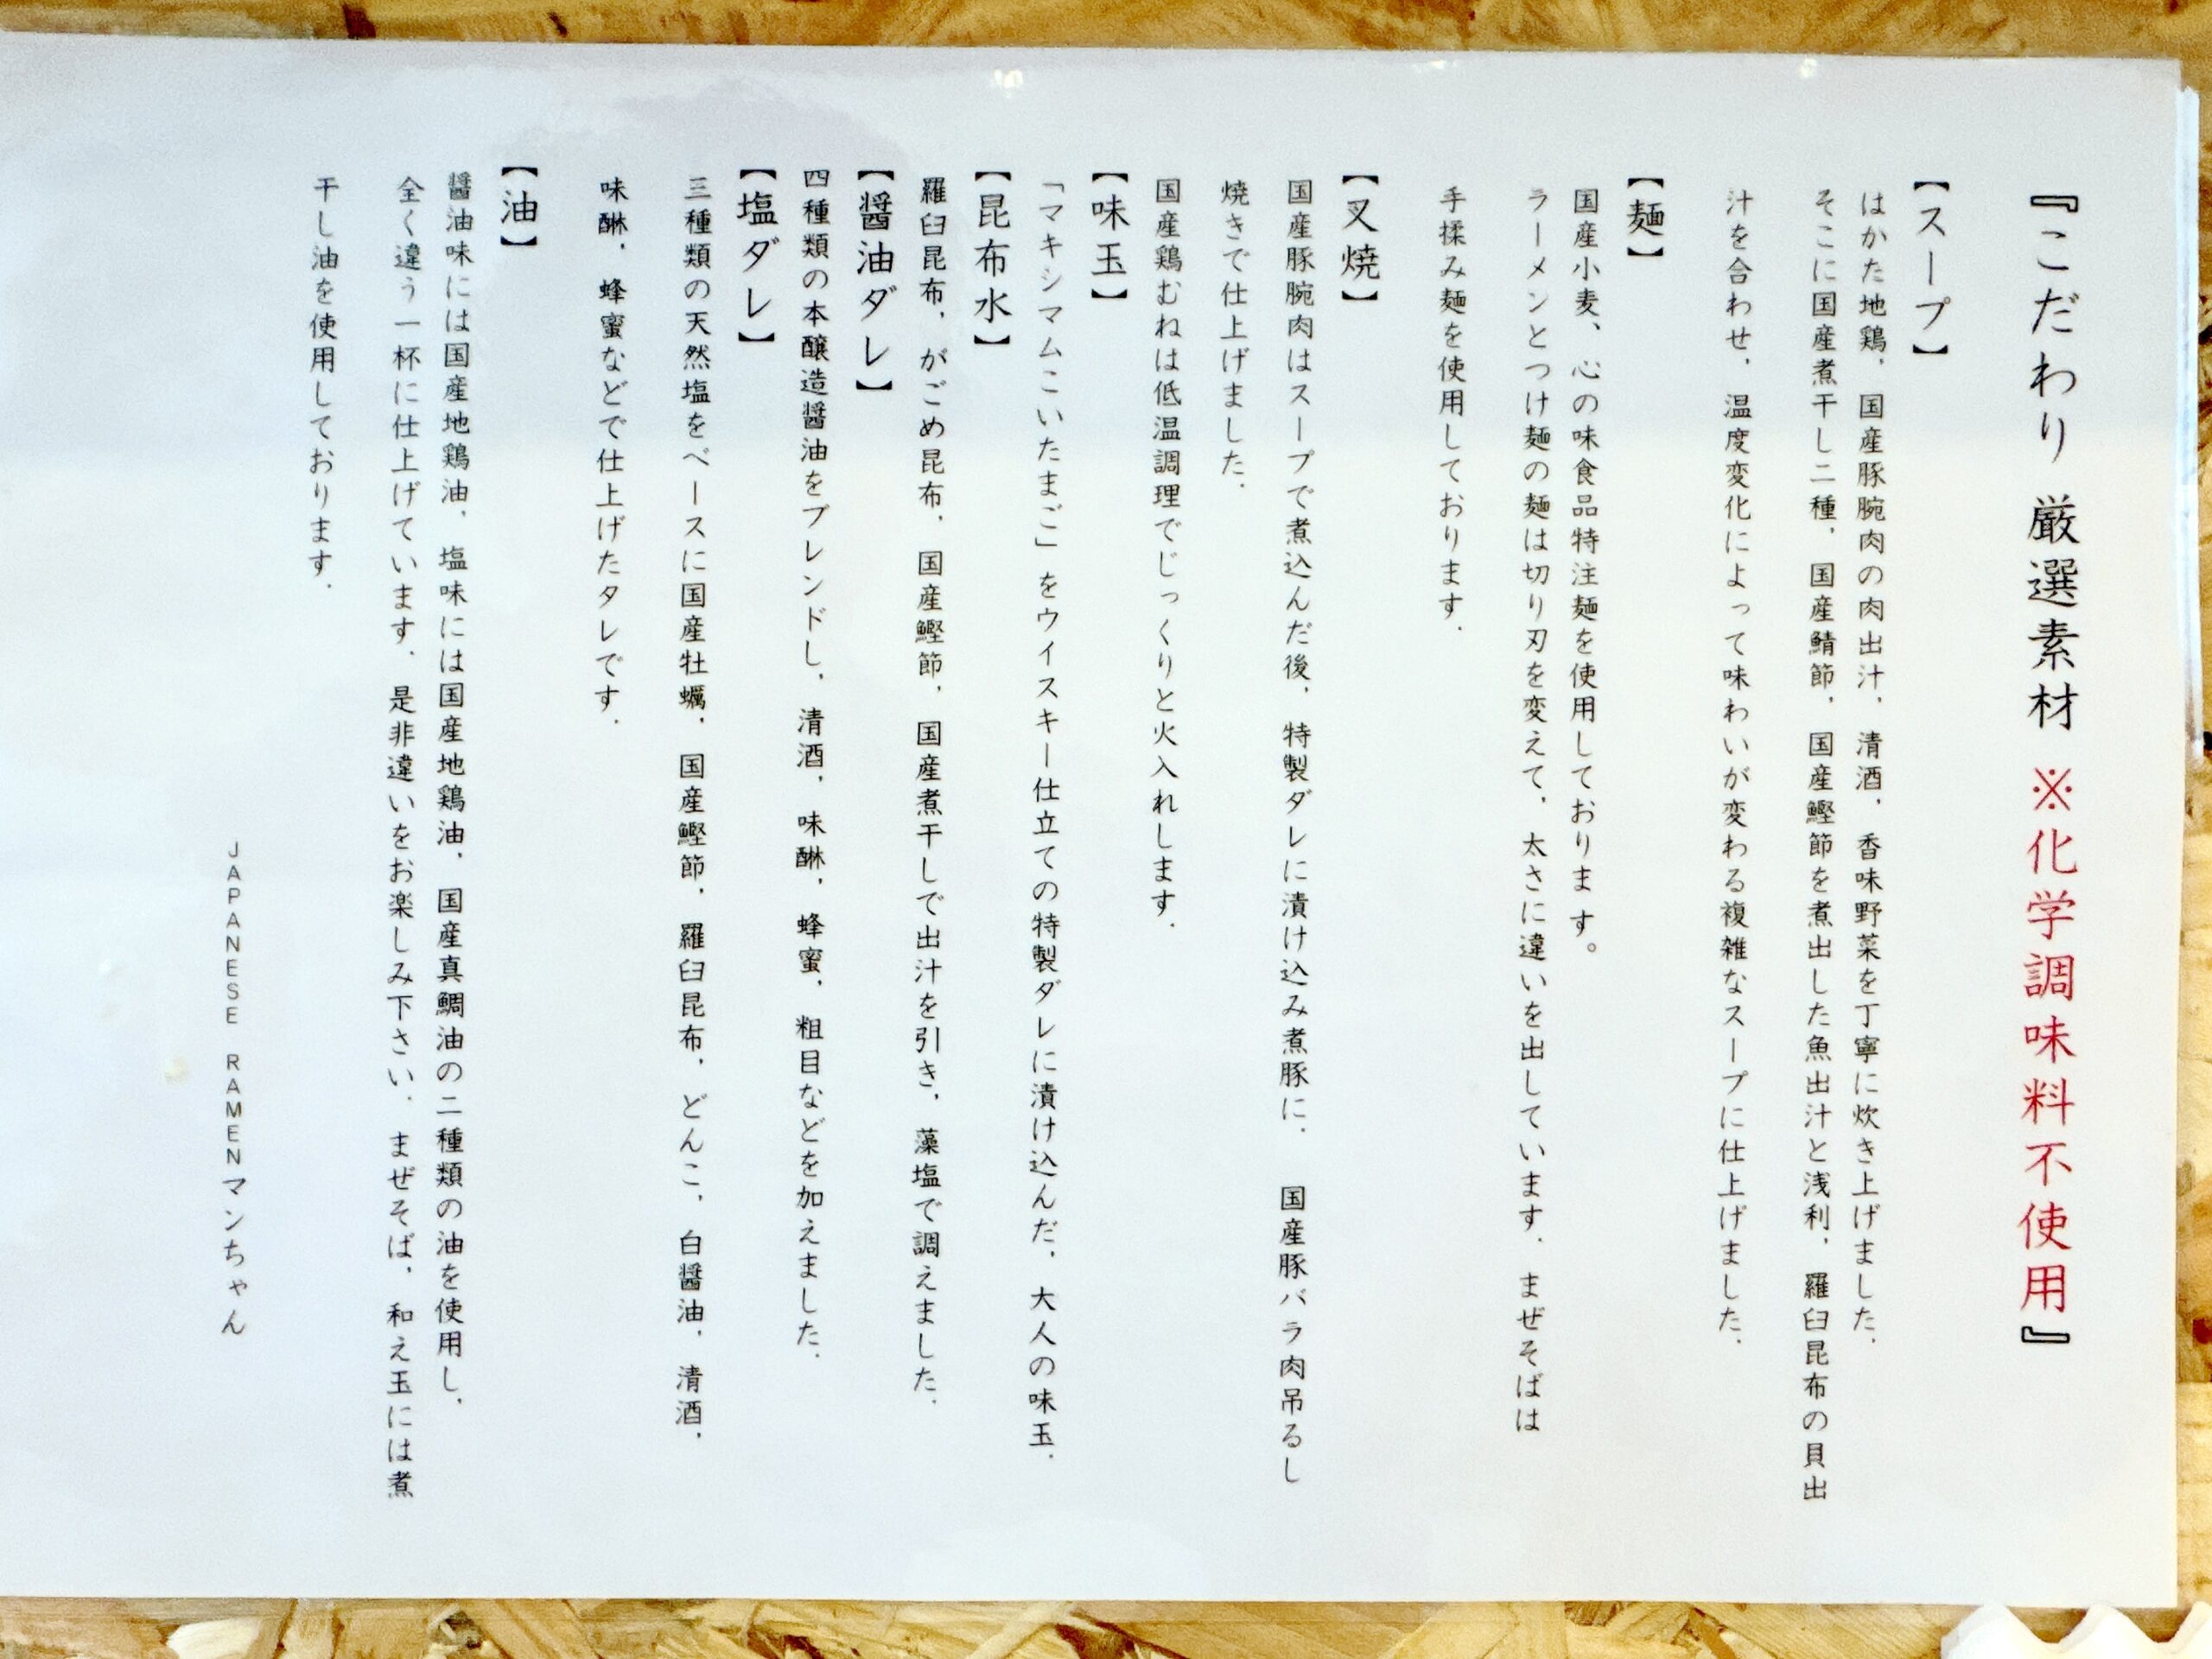 『こだわり 厳選素材 ※化学調味料不使用』
【スープ】
はかた地鶏、国産豚腕肉の肉出汁、清酒、香味野菜を丁寧に炊き上げました。
そこに国産煮干し二種、国産鯖節、国産鰹節を煮出した魚出汁と浅利、羅臼昆布の貝出
汁を合わせ、温度変化によって味わいが変わる複雑なスープに仕上げました。
【麺】
国産小麦、心の味食品特注麺を使用しております。
ラーメンとつけ麺の麺は切り刃を変えて、太さに違いを出しています。まぜそばは
手揉み麺を使用しております。
【叉焼】
国産豚腕肉はスープで煮込んだ後、特製ダレに漬け込み煮豚に。 国産豚バラ肉吊るし
焼きで仕上げました。
国産鶏むねは低温調理でじっくりと火入れします。
【味玉】
「マキシマムこいたまご」をウイスキー仕立ての特製ダレに漬け込んだ、大人の味玉。
【昆布水】
羅臼昆布、がごめ昆布、国産鰹節、国産煮干しで出汁を引き、藻塩で調えました。
【醤油ダレ】
四種類の本醸造醤油をブレンドし、清酒、味醂、蜂蜜、粗目などを加えました。
【塩ダレ】
三種類の天然塩をベースに国産牡蠣、国産鰹節、羅臼昆布、どんこ、白醤油、清酒、
味醂、蜂蜜などで仕上げたタレです。
【油】
醤油味には国産地鶏油、塩味には国産地鶏油、国産真鯛油の二種類の油を使用し、
全く違う一杯に仕上げています。是非違いをお楽しみ下さい。まぜそば、和え玉には煮
干し油を使用しております。
JAPANESE RAMENマンちゃん